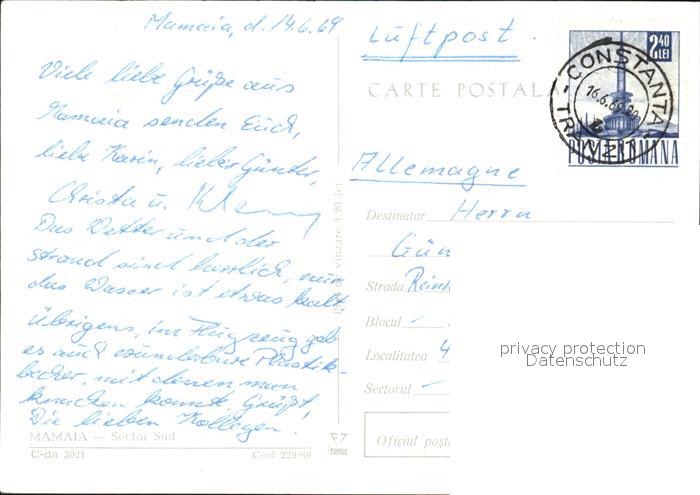 Mamaia, d. 14.6.69
Viele liebe Grüße aus
Mamaia senden Euch,
liebe Karin, lieber Günter,
Christa u.
Das Wetter und der
Strand sind herrlich, nur
das Wasser ist etwas kalt
Übrigens, im Flugzeug gab
es auch wunderbare Plastik-
becher, mit denen man
knacken konnte. Grüßt,
Die lieben Kollegen.
MAMAIA — Sector Sud
C-da 3021 Cod 229/68
vinzare 1,90 lei
Luftpost.
CARTE POSTALA
2,40
LEI
CONSTANTA
16.6.69
TRANZIT
POSTA ROMANA
Allemagne
Destinatar Herrn
Gün
Strada Reinh
Blocul -
Localitatea 4
Sectorul -
Oficiul poșta
privacy protection
Datenschutz